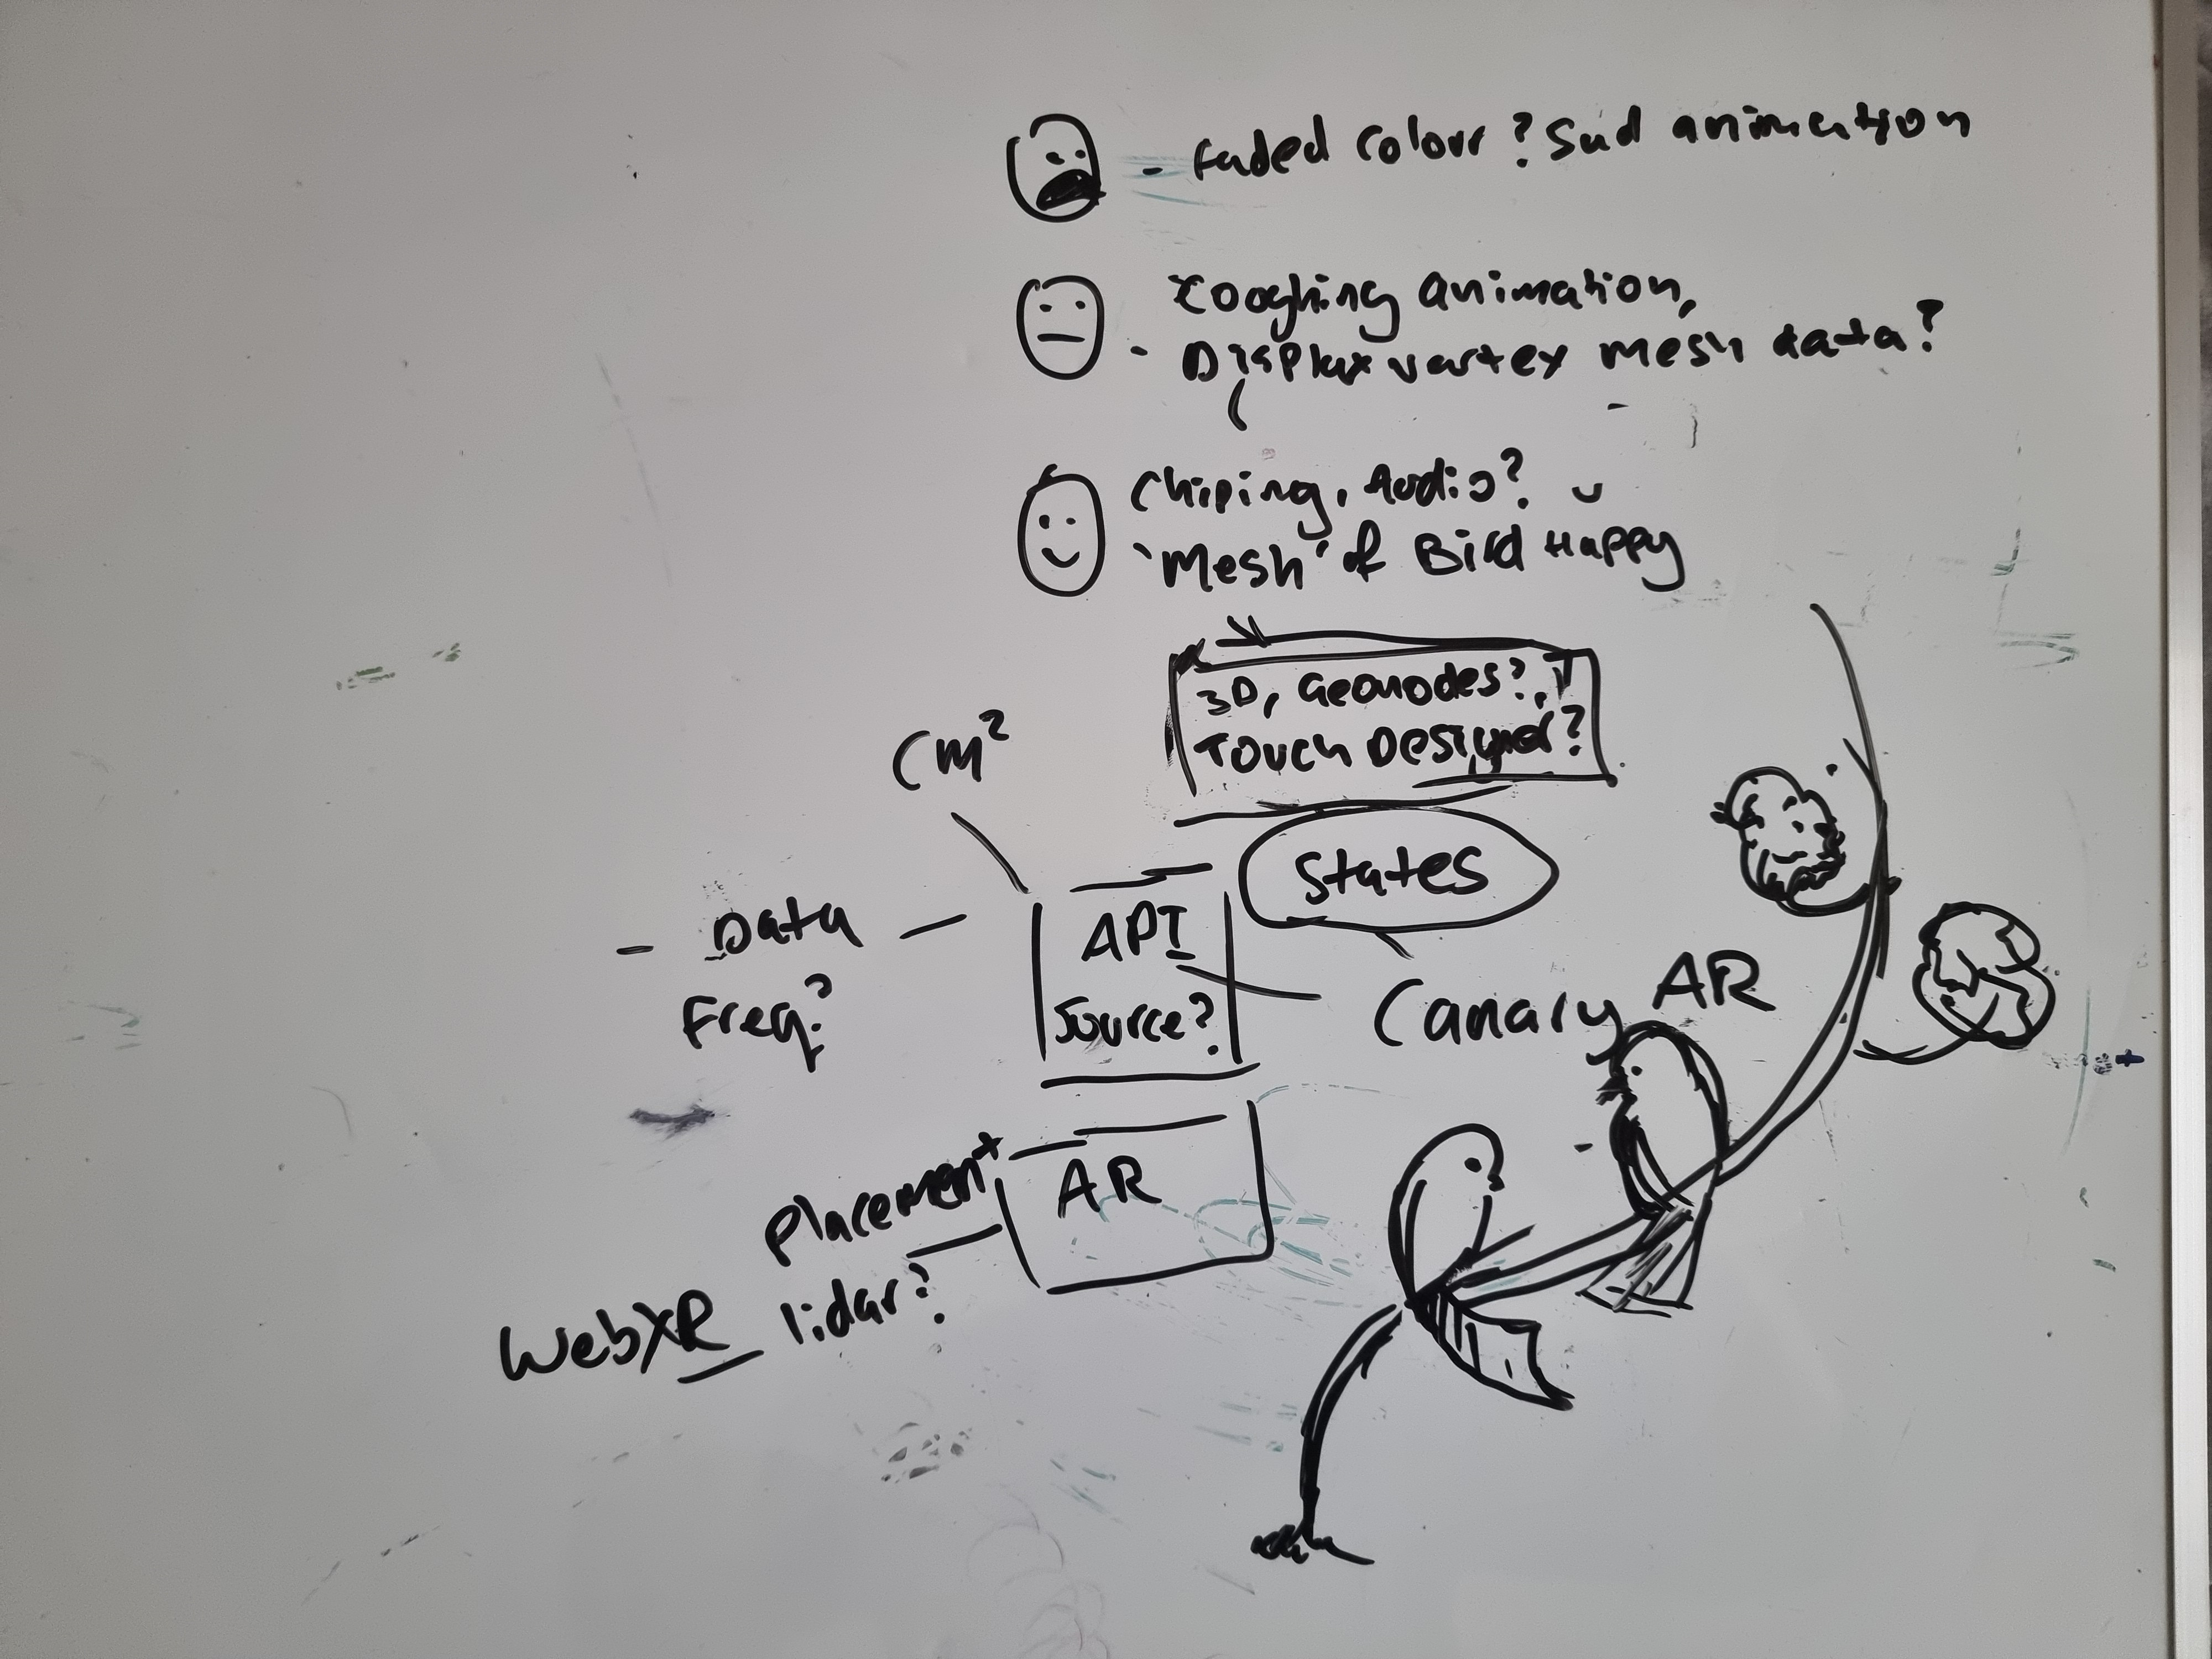 - Faded color? Sad animation
coughing animation,
- Display vertex mesh data?
Chiping, audio?
- Mesh of Bird Happy
3D, Geonodes?,
TOUCH DESIGNER?
CM²
States
- Data -
Freq?
API
Source?
Canary AR
Placement
AR
WebXR
lidar?